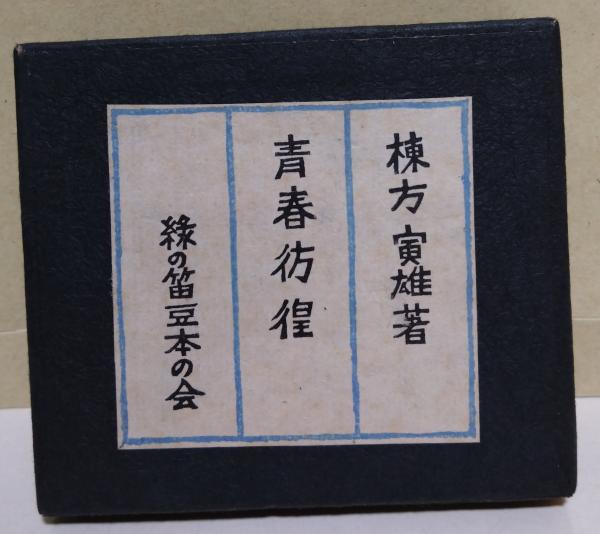 棟方寅雄著
青春彷徨
緑の笛豆本の会